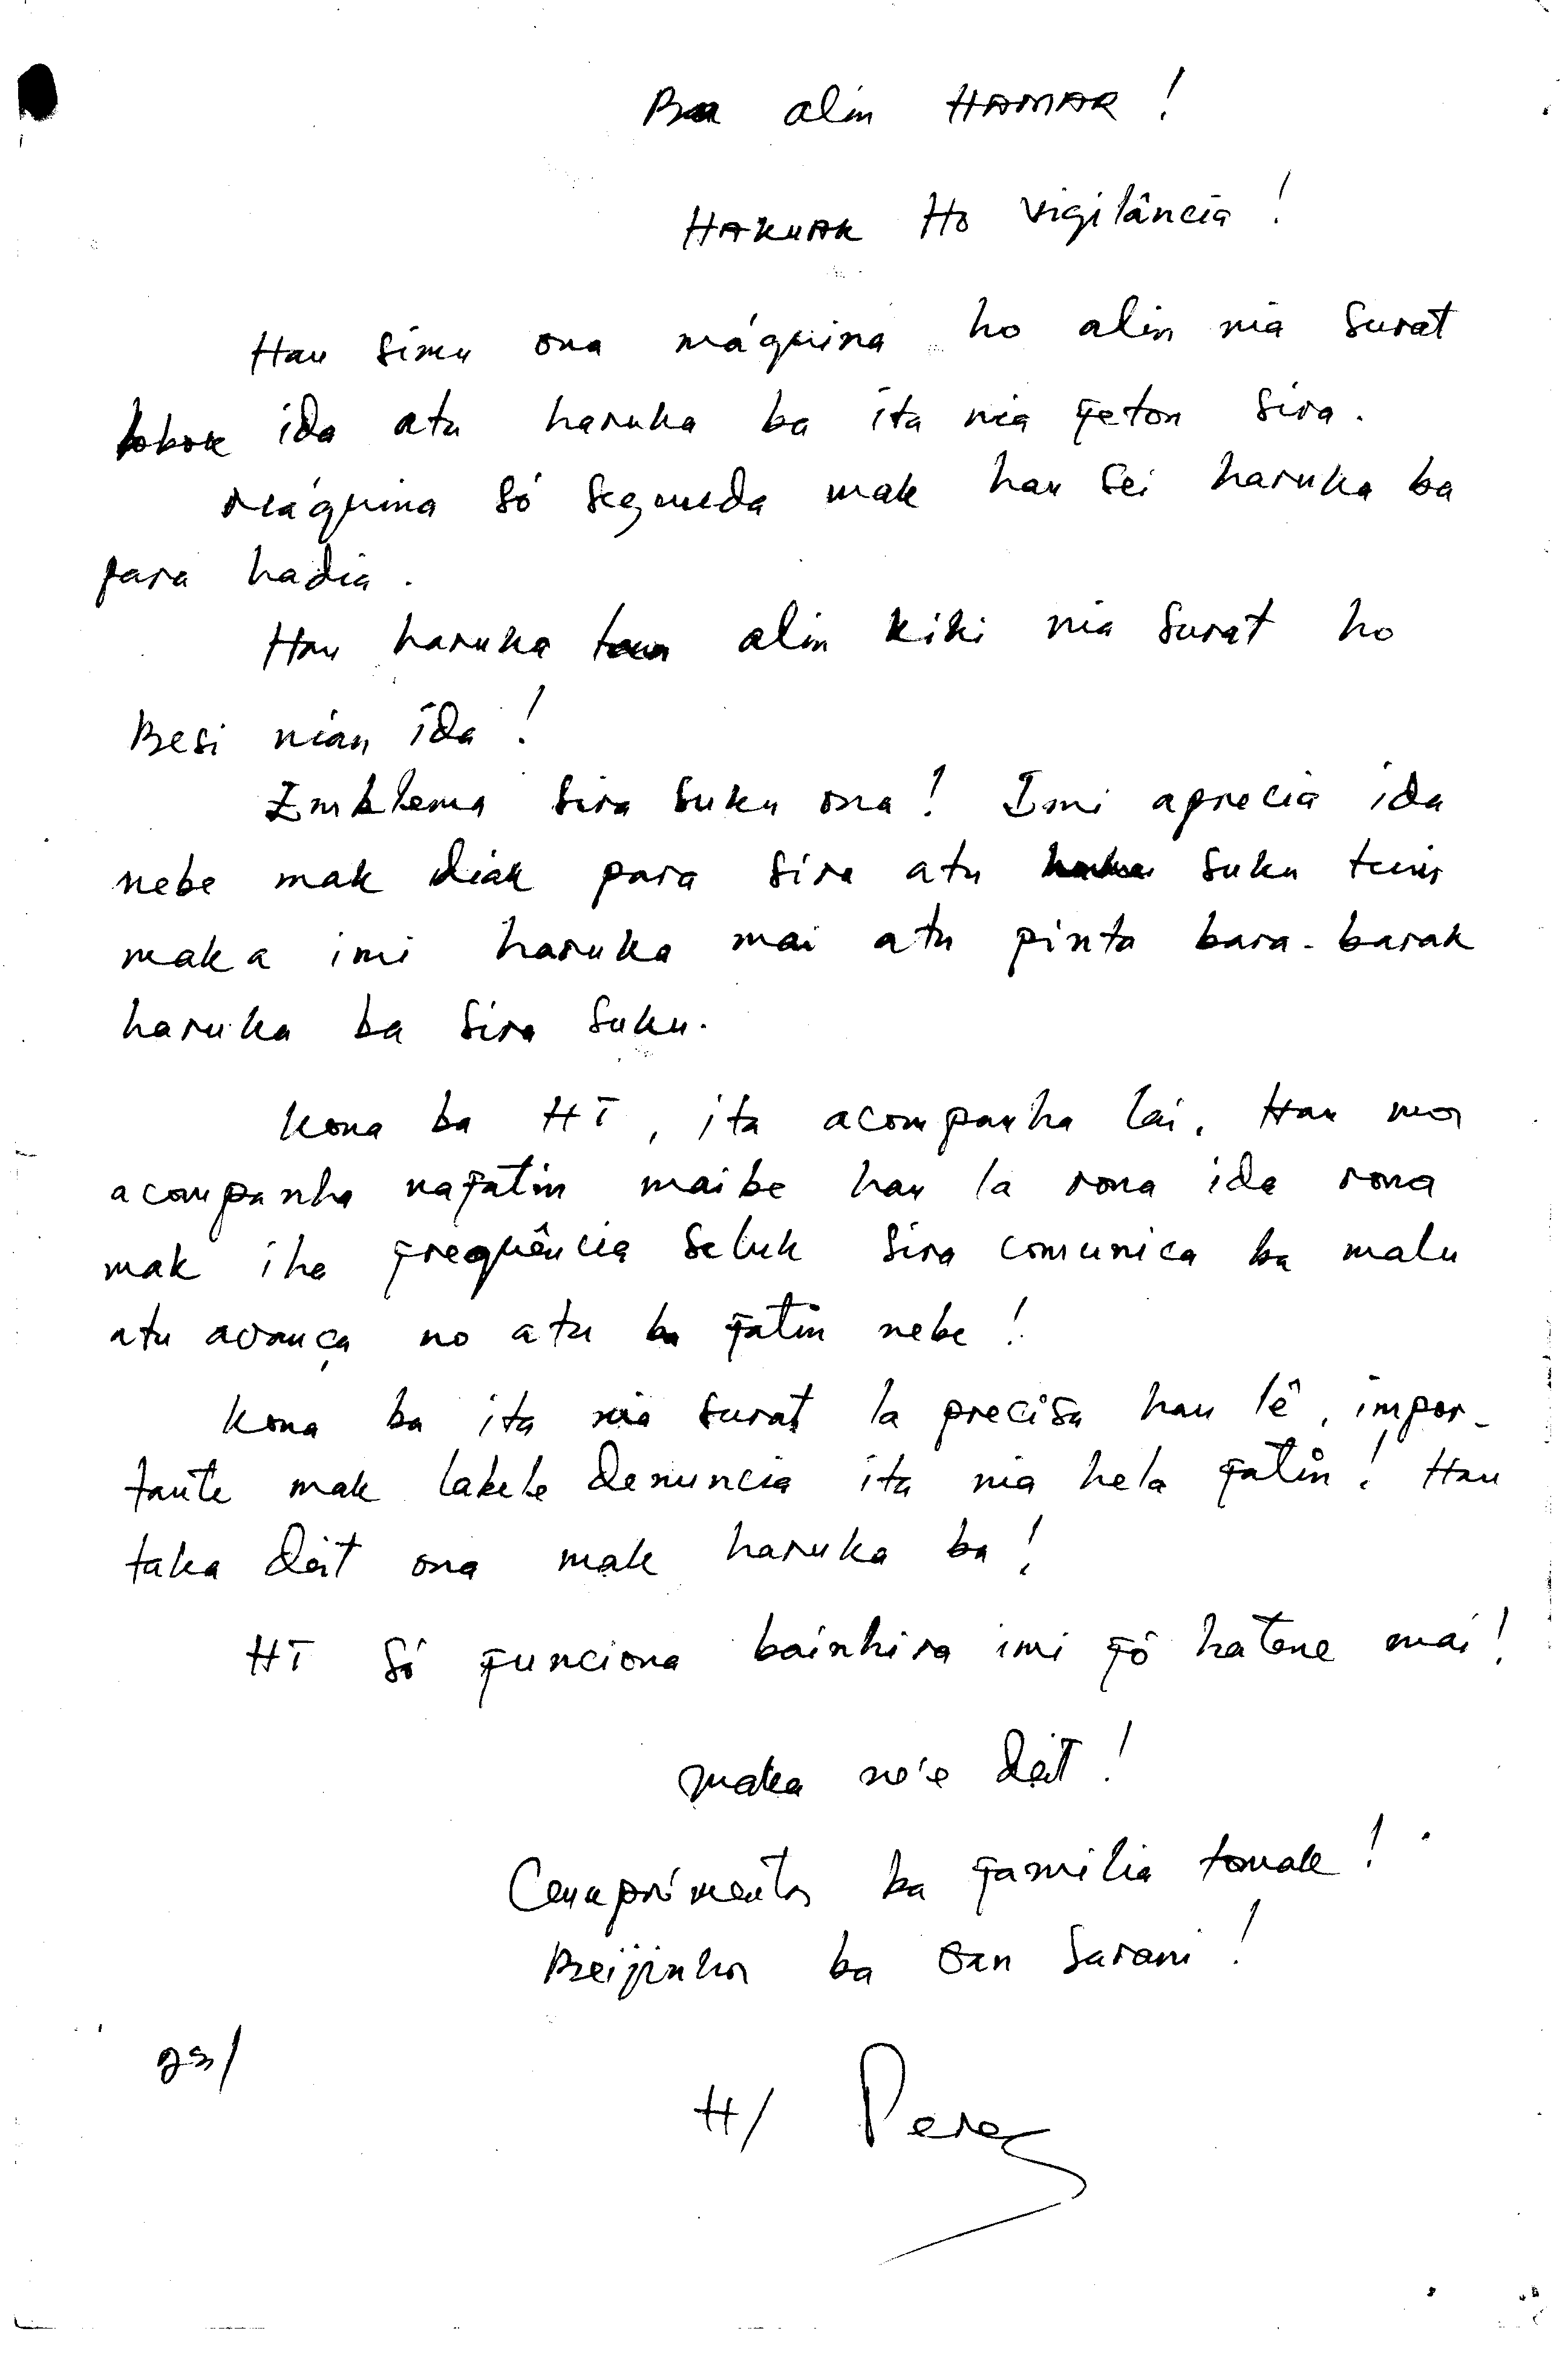 Ba alin HAMAR!
HAKUAK Ho vigilância!
Hau simu ona máquina ho alin nia surat
bobok ida atu haruka ba ita nia feton sira.
Máquina só segunda mak hau sei haruka ba
para hadia.
Hau haruka tan alin Kiki nia surat ho
Besi nian ida!
Emblema sira suku ona! Imi aprecia ida
nebe mak diak para sira atu suku tuir
maka imi haruka mai atu pinta bara-barak
haruka ba sira suku.
Kona ba HT, ita acompanha lai. Hau mos
acompanha nafatin maibe hau la rona ida rona
mak iha frequência seluk sira comunica ba malu
atu avança no atu ba fatin nebe!
Kona ba ita nia surat la precisa hau lê, impor-
tante mak labele denuncia ita nia hela fatin! Hau
taka deit ona mak haruka ba!
HT só funciona bainhira imi fó hatene mai!
Maka ne'e deit!
Cumprimentos ba familia tomak!
Beijinhos ba Oan Sarani!
H/ Perez